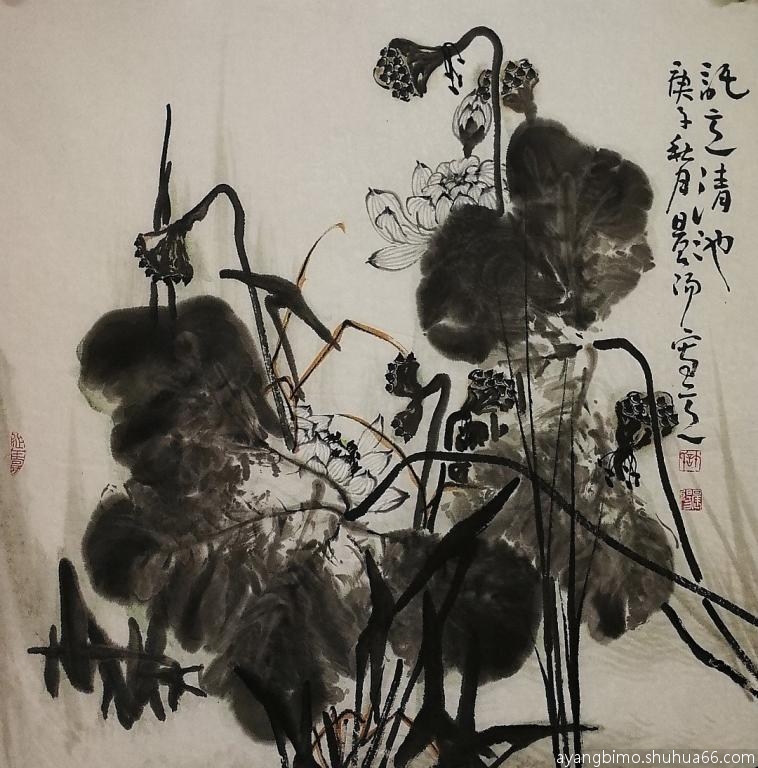 託意清池
庚子秋月 阳写意
ayangbimo.shuhua66.com